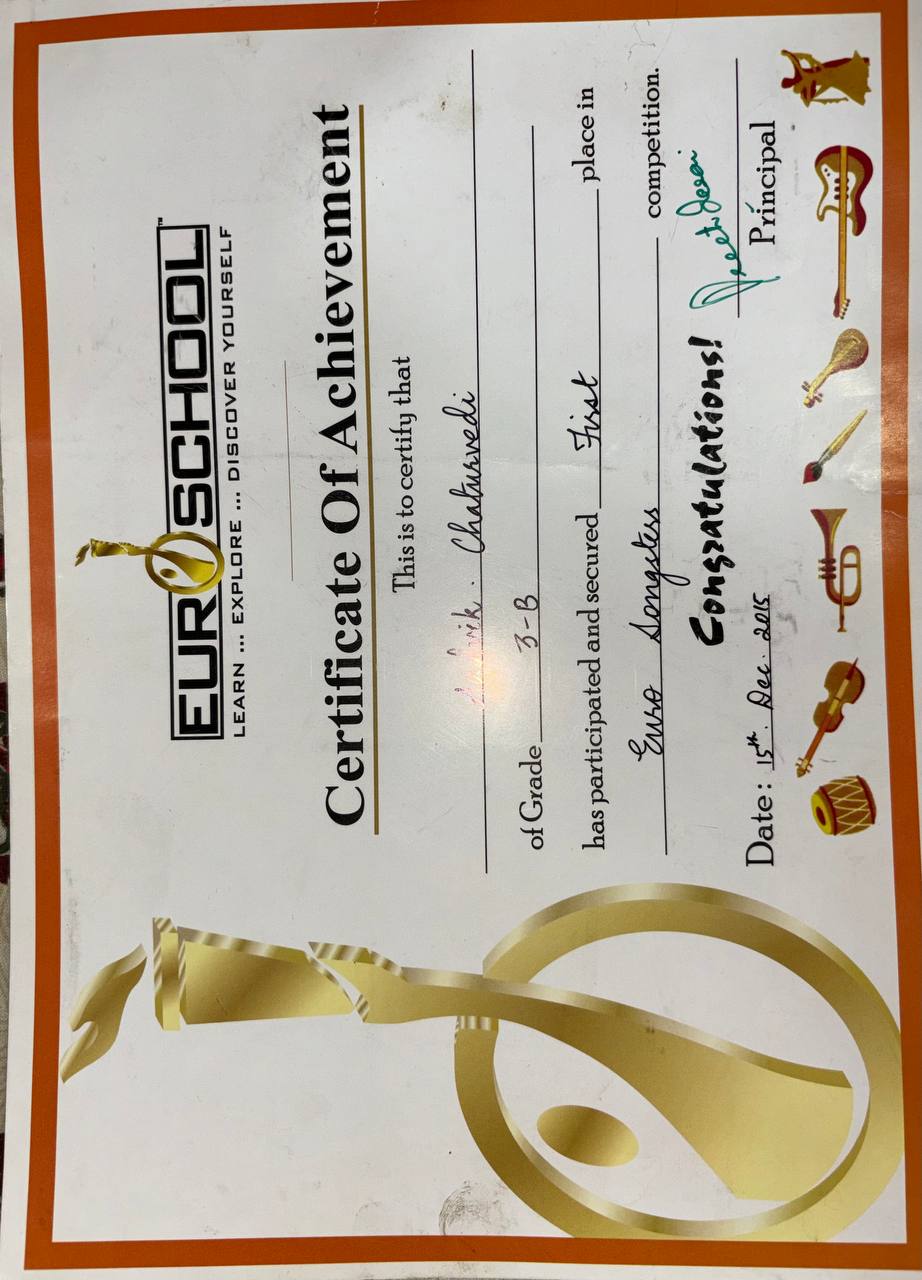 EUROSCHOOL™
LEARN ... EXPLORE ... DISCOVER YOURSELF
Certificate Of Achievement
This is to certify that
Chaturvedi
of Grade 3-B
has participated and secured First place in
Euro Songsters competition.
Congratulations!
Date: 15th. Dec. 2015
Principal